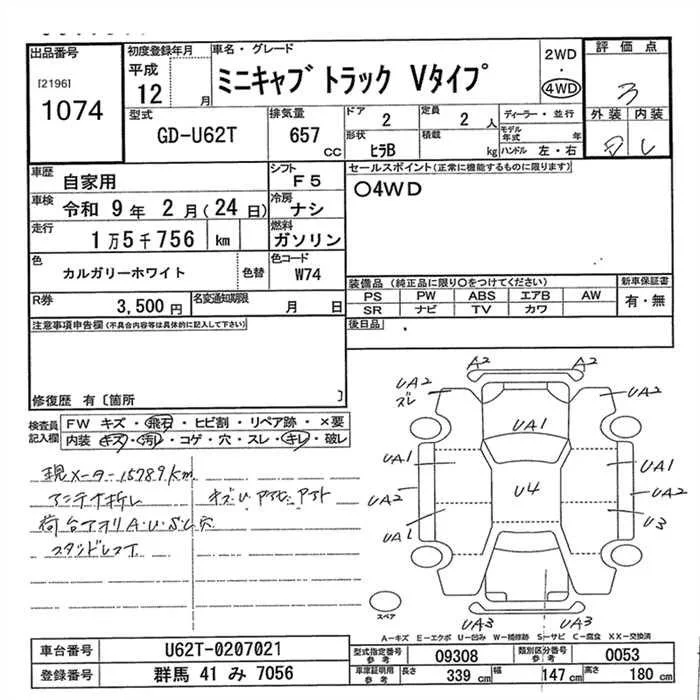 出品番号
[2196]
1074
初度登録年月
平成
12 月
車名・グレード
ミニキャブ トラック Vタイプ
2WD
・
4WD
評価点
3
外装 内装
型式
GD-U62T
排気量
657 CC
ドア
2
定員
2 人
形状
ヒラB
積載
kg
ディーラー・並行
モデル年式 年
ハンドル 左・右
車歴
自家用
シフト
F5
車検
令和 9年 2月(24日)
冷房
ナシ
走行
1万5千756 km
燃料
ガソリン
色
カルガリーホワイト
色替
色コード
W74
R券
3,500円
名変通知期限
月 日
セールスポイント(正常に機能するものに限ります)
○4WD
装備品(純正品に限り○をつけてください)
PS PW ABS エアB AW
SR ナビ TV カワ
新車保証書
有・無
後日品
注意事項申告欄(不具合内容等は具体的に記入して下さい)
修復歴 有〔箇所 〕
検査員記入欄
FW キズ・飛石・ヒビ割・リペア跡・×要
内装 キズ・汚レ・コゲ・穴・スレ・キレ・破レ
現メーター15789km
アンテナ折レ
荷台アオリA・U・S・L穴
A2 A2
UA2
ズレ
UA2
UA1
UA1 UA1
U4
UA2 UA2
UA1 U3
UA3 UA3
スペア
A-キズ E-エクボ U-凹み W-補修跡 S-サビ C-腐食 XX-交換済
車台番号
U62T-0207021
登録番号
群馬 41 み 7056
型式指定番号
参考
09308
類別区分番号
参考
0053
車庫証明用
参考
長さ
339 cm
幅
147 cm
高さ
180 cm